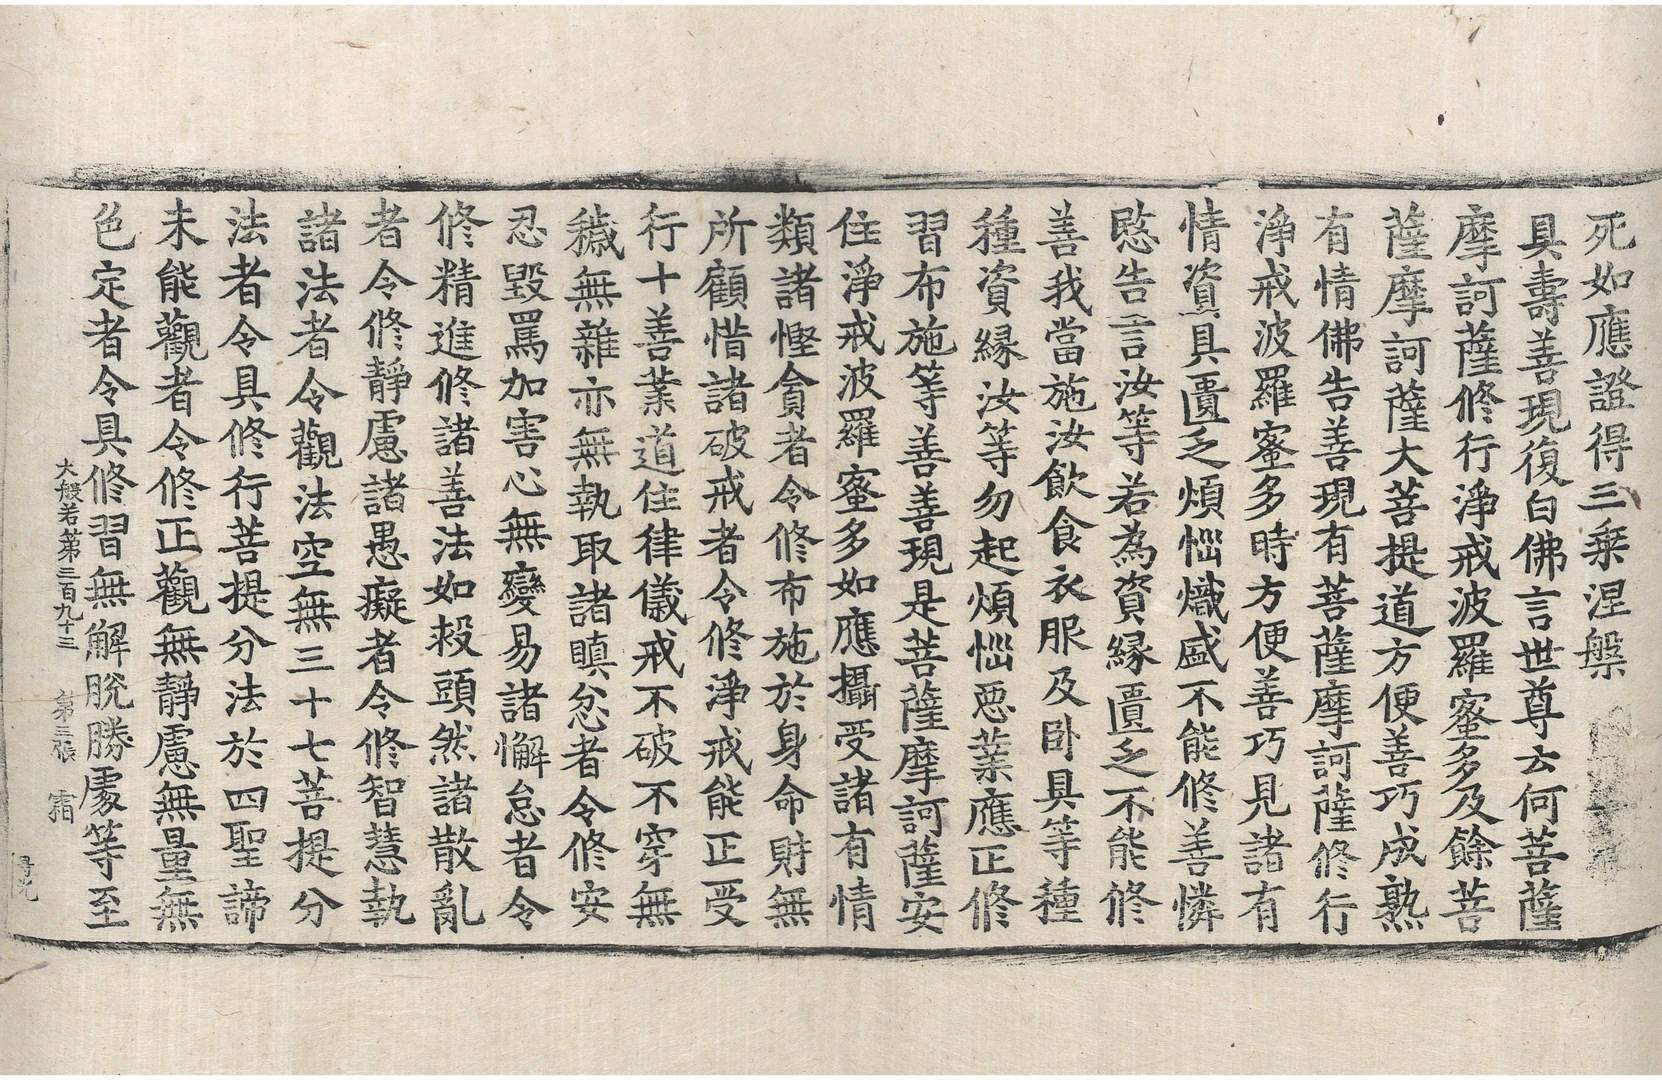 死如應證得三乘涅槃
具壽善現復白佛言世尊云何菩薩
摩訶薩修行淨戒波羅蜜多及餘菩
薩摩訶薩大菩提道方便善巧成熟
有情佛告善現有菩薩摩訶薩修行
淨戒波羅蜜多時方便善巧見諸有
情資具匱乏煩惱熾盛不能修善憐
愍告言汝等若為資緣匱乏不能修
善我當施汝飲食衣服及卧具等種
種資緣汝等勿起煩惱惡業應正修
習布施等善善現是菩薩摩訶薩安
住淨戒波羅蜜多如應攝受諸有情
類諸慳貪者令修布施於身命財無
所顧惜諸破戒者令修淨戒能正受
行十善業道住律儀戒不破不穿無
穢無雜亦無執取諸瞋忿者令修安
忍毀罵加害心無變易諸懈怠者令
修精進修諸善法如救頭然諸散亂
者令修靜慮諸愚癡者令修智慧執
諸法者令觀法空無三十七菩提分
法者令具修行菩提分法於四聖諦
未能觀者令修正觀無靜慮無量無
色定者令具修習無解脫勝處等至
大般若第三百九十三　第三張　霜